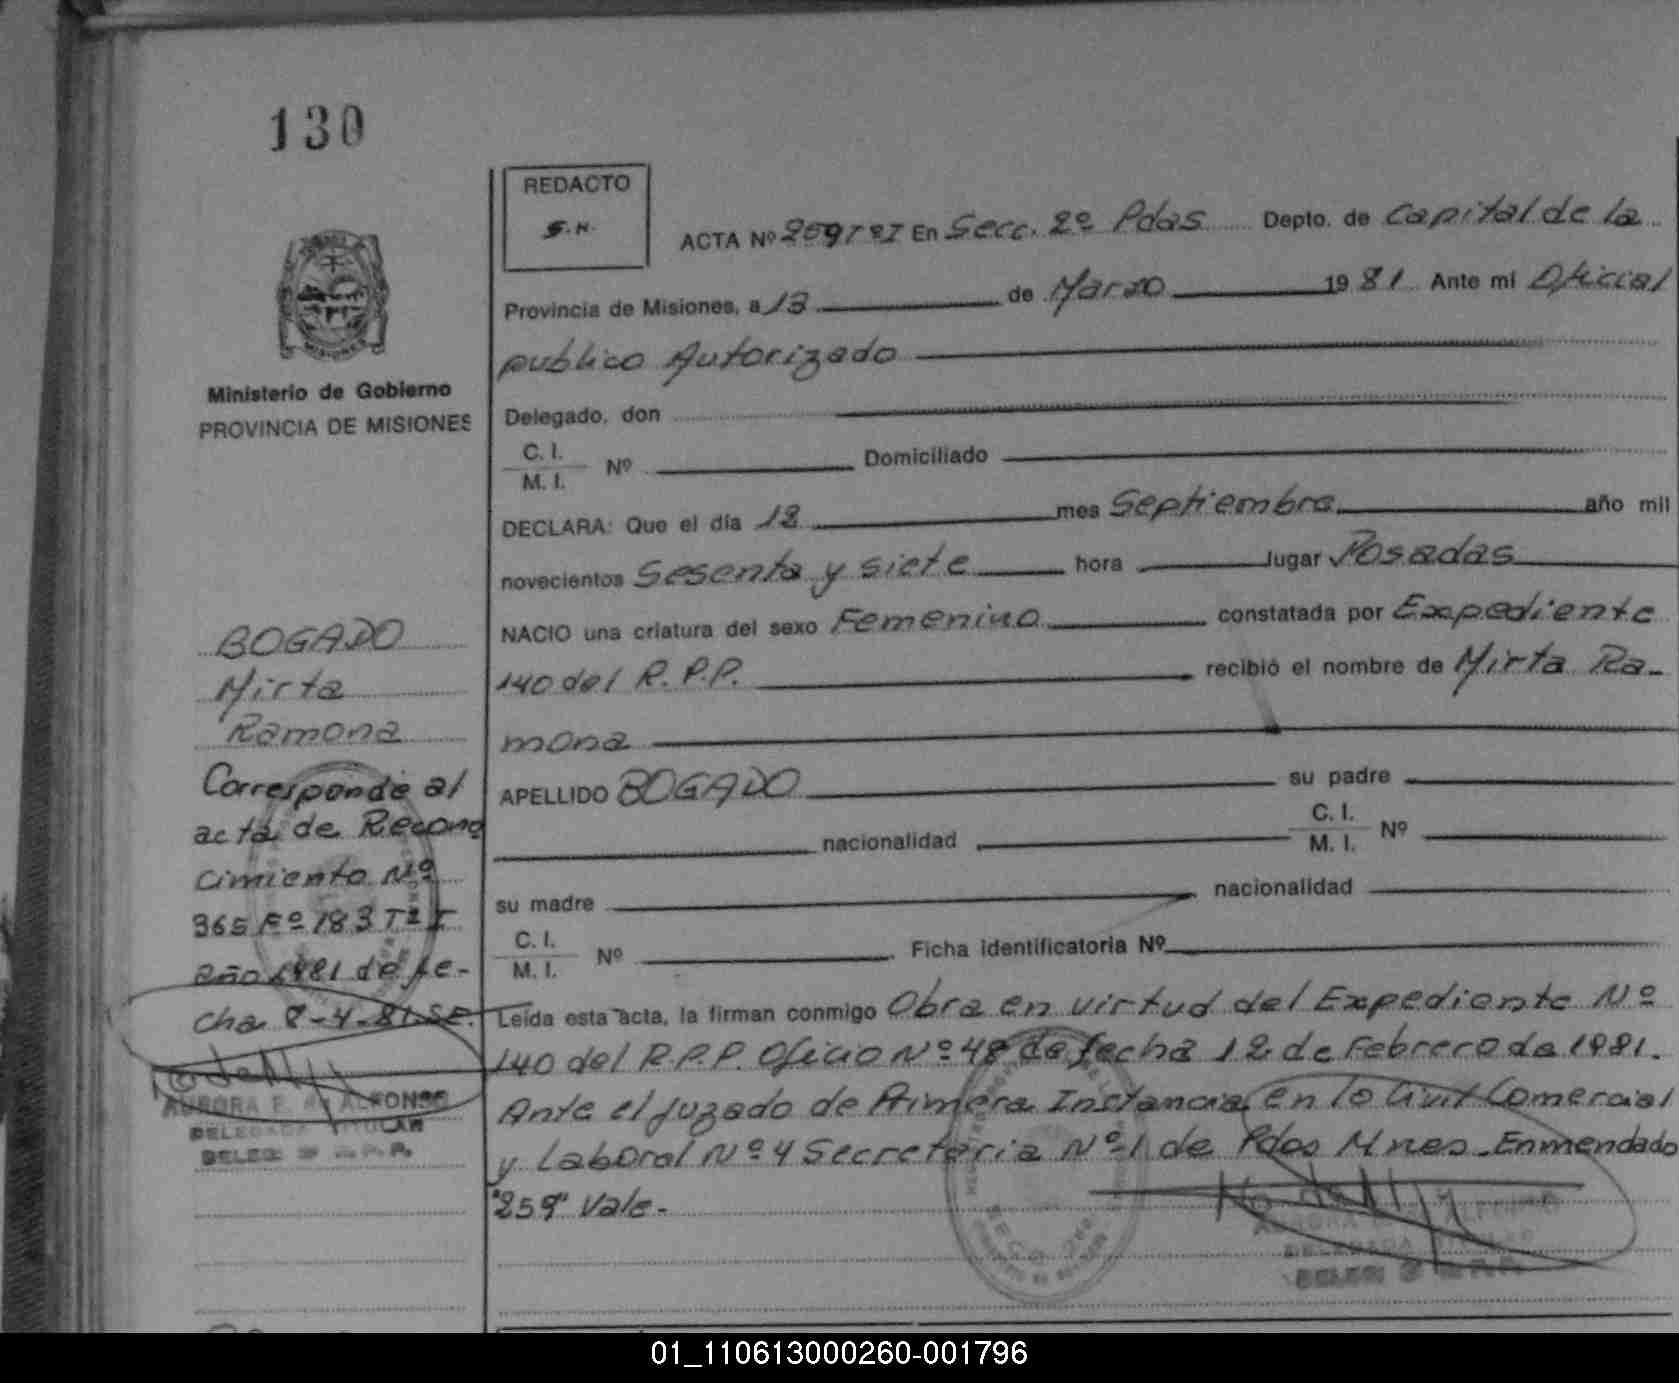 130
REDACTO
S.N.
ACTA Nº 259 Tº I En Secc. 2º Pdas Depto. de Capital de la
Provincia de Misiones, a 13 de Marzo 1981 Ante mi Oficial
publico Autorizado
Delegado, don
C. I.
M. I. Nº Domiciliado
DECLARA: Que el día 12 mes Septiembre año mil
novecientos Sesenta y siete hora lugar Posadas
NACIO una criatura del sexo Femenino constatada por Expediente
140 del R.P.P. recibió el nombre de Mirta Ra-
mona
APELLIDO BOGADO su padre
nacionalidad C. I.
M. I. Nº
su madre nacionalidad
C. I.
M. I. Nº Ficha identificatoria Nº
Leída esta acta, la firman conmigo Obra en virtud del Expediente Nº
140 del R.P.P. Oficio Nº 48 de fecha 12 de Febrero de 1981.
Ante el Juzgado de Primera Instancia en lo Civil Comercial
y Laboral Nº 4 Secretaria Nº 1 de Pdas Mnes. Enmendado
"259" Vale.-
DELEGADA
Ministerio de Gobierno
PROVINCIA DE MISIONES
BOGADO
Mirta
Ramona
Corresponde al
acta de Recono
cimiento Nº
365 Fº 183 Tº I
año 1981 de fe-
cha 8-4-81. SE.
AURORA E. de ALFONSO
DELEGADA TITULAR
01_110613000260-001796